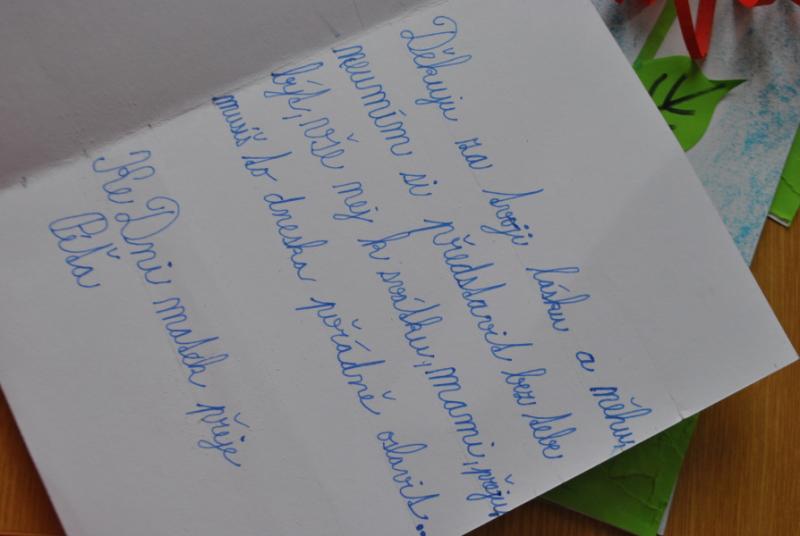 Děkuju za tvoji lásku a něhu,
neumím si představit bez tebe
být, vše nej k svátku, mami, prožij,
musíš to dneska pořádně oslavit..
Ke Dni matek přeje
Péťa